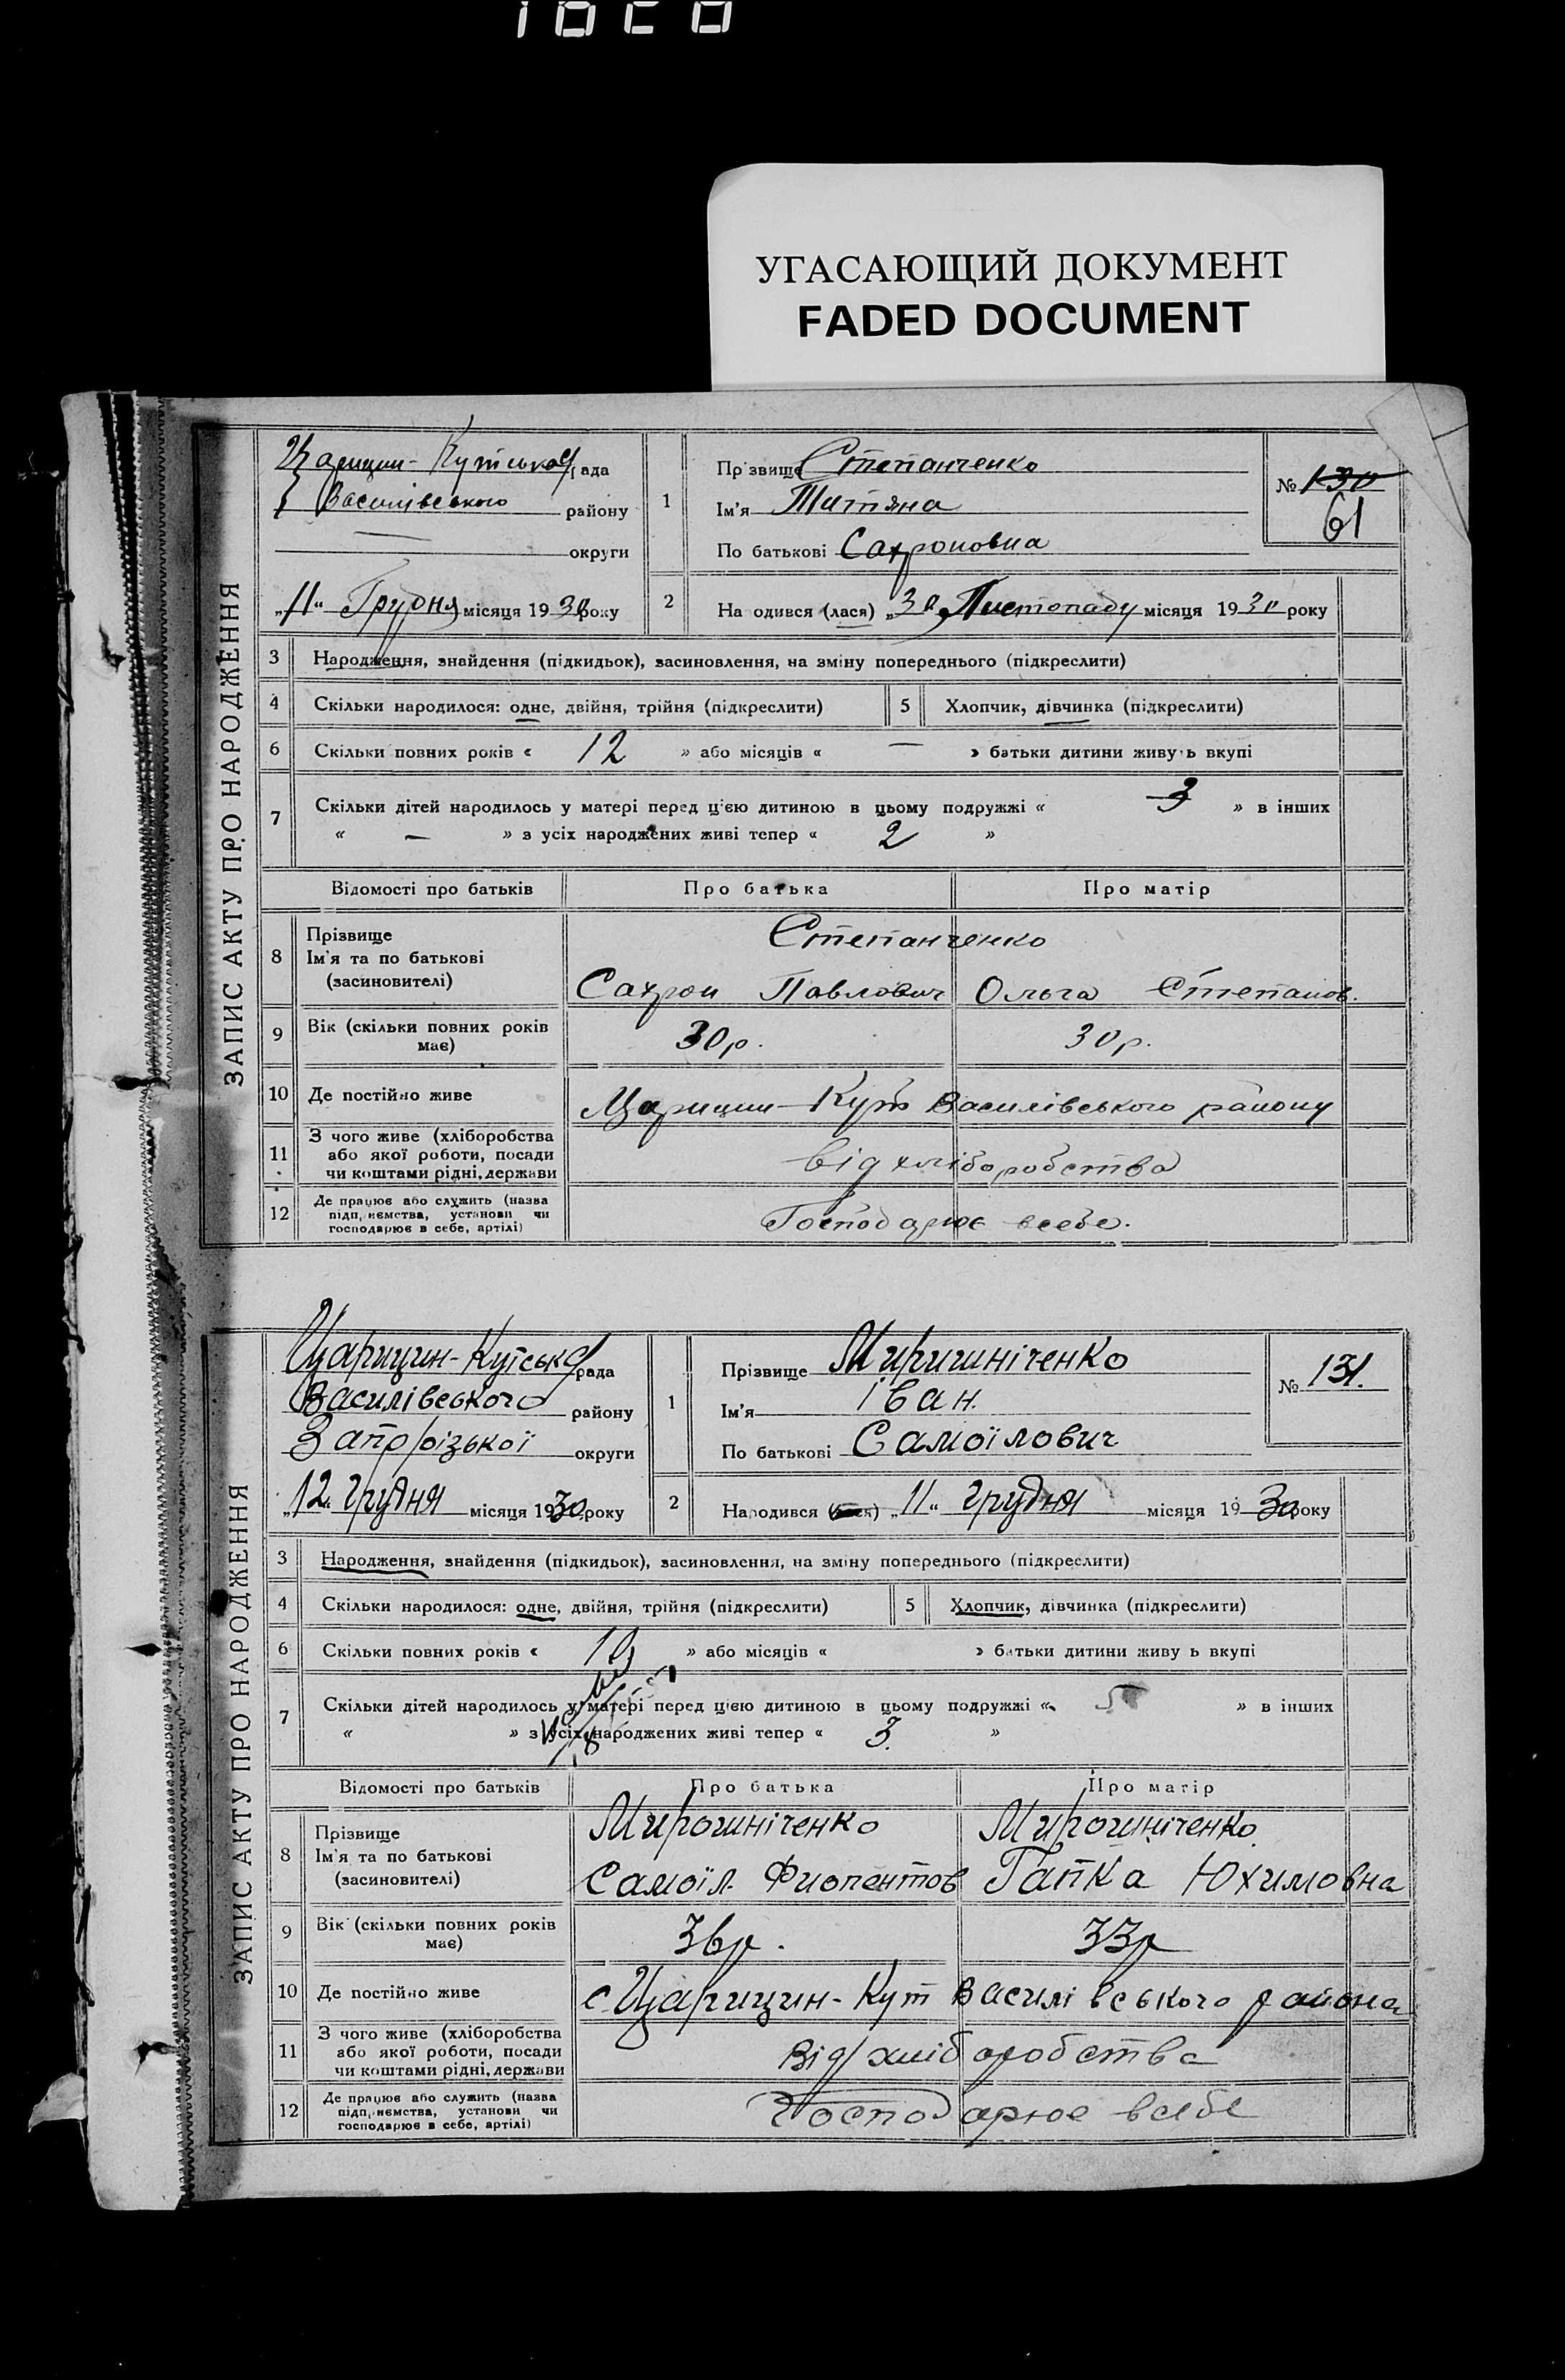 УГАСАЮЩИЙ ДОКУМЕНТ
FADED DOCUMENT
ЗАПИС АКТУ ПРО НАРОДЖЕННЯ
Царицин-Кутська рада
Василівського району
— округи
„11“ Грудня місяця 1930 року
1
Прізвище Степанченко
Ім'я Татяна
По батькові Сахроновна
№ 130
61
2
На одився (лася) „30 Листопаду місяця 1930 року
3 Народження, знайдення (підкидьок), засиновлення, на зміну попереднього (підкреслити)
4 Скільки народилося: одне, двійня, трійня (підкреслити) 5 Хлопчик, дівчинка (підкреслити)
6 Скільки повних років « 12 » або місяців « — » батьки дитини живу ь вкупі
7 Скільки дітей народилось у матері перед цією дитиною в цьому подружжі « 3 » в інших
« — » з усіх народжених живі тепер « 2 »
Відомості про батьків Про батька Про матір
8 Прізвище
Ім'я та по батькові
(засиновителі)
Степанченко
Сахрон Павлович Ольга Степанов.
9 Вік (скільки повних років
має)
30р. 30р.
10 Де постійно живе Царицин-Кут Василівського району
11 З чого живе (хліборобства
або якої роботи, посади
чи коштами рідні, держави
від хліборобства
12 Де працює або служить (назва
підп иємства, установи чи
господарює в себе, артілі)
Господарює всебе.
ЗАПИС АКТУ ПРО НАРОДЖЕННЯ
Царицин-Кутська рада
Василівського району
Запорізької округи
„12“ грудня місяця 1930 року
1
Прізвище Миришніченко
Ім'я Іван.
По батькові Самоїлович
№ 131.
2
Народився (лася) „11“ грудня місяця 1930 року
3 Народження, знайдення (підкидьок), засиновлення, на зміну попереднього (підкреслити)
4 Скільки народилося: одне, двійня, трійня (підкреслити) 5 Хлопчик, дівчинка (підкреслити)
6 Скільки повних років « » або місяців « » батьки дитини живу ь вкупі
7 Скільки дітей народилось у матері перед цією дитиною в цьому подружжі « 5 » в інших
« » з усіх народжених живі тепер « 3. »
Відомості про батьків Про батька Про матір
8 Прізвище
Ім'я та по батькові
(засиновителі)
Мирошніченко Мирошніченко
Самоїл. Гапка Юхимовна
9 Вік (скільки повних років
має)
36р. 33р
10 Де постійно живе с. Царицин-Кут Василівського района
11 З чого живе (хліборобства
або якої роботи, посади
чи коштами рідні, держави
Від хліборобства
12 Де працює або служить (назва
підп иємства, установи чи
господарює в себе, артілі)
Господарює всебе